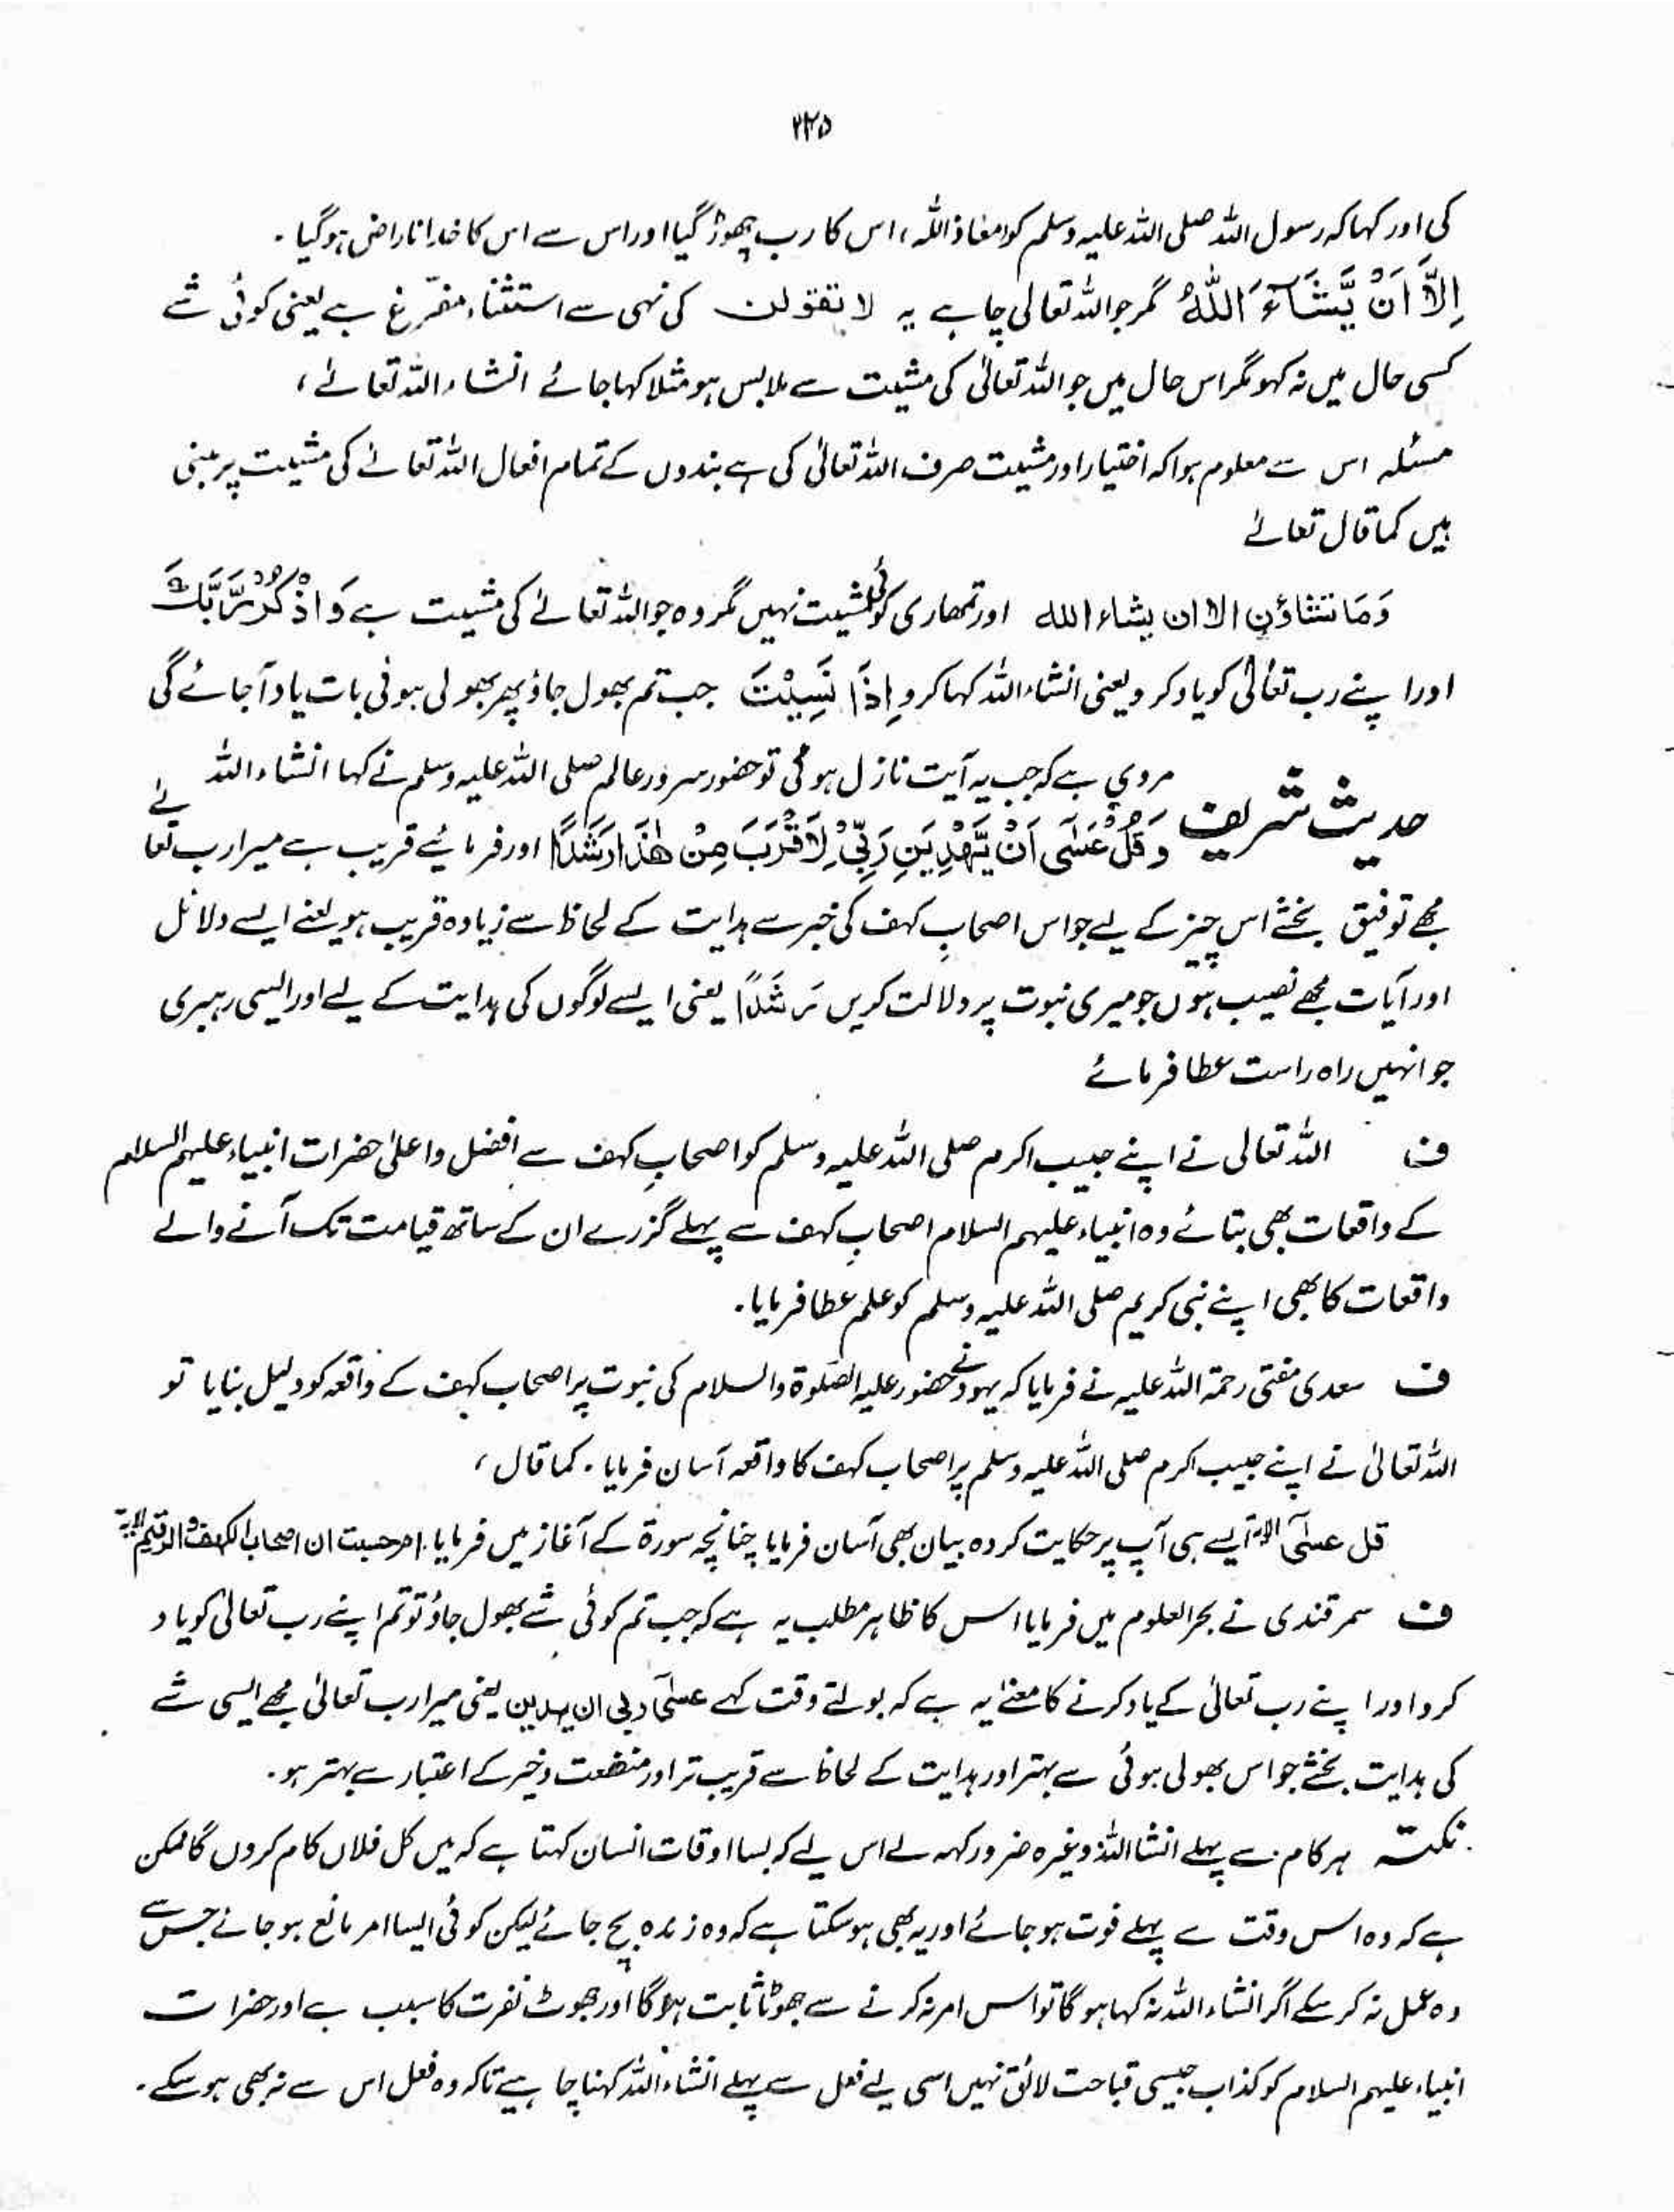 ۲۲۵
کی اور کہا کہ رسول اللہ صلی اللہ علیہ وسلم کو (معاذ اللہ) اس کا رب چھوڑ گیا اور اس سے اس کا خدا ناراض ہوگیا ۔
اِلَّا اَنْ یَّشَآءَ اللّٰہُ مگر جو اللہ تعالی چاہے یہ لا تقولن کی نہی سے استثناء مفرّغ ہے یعنی کوئی شے
کسی حال میں نہ کہو مگر اس حال میں جو اللہ تعالیٰ کی مشیت سے ملابس ہو مثلا کہا جائے انشاء اللہ تعالےٰ ،
مسئلہ اس سے معلوم ہوا کہ اختیار اور مشیت صرف اللہ تعالیٰ کی ہے بندوں کے تمام افعال اللہ تعالےٰ کی مشیت پر مبنی
ہیں کما قال تعالےٰ
وَمَا تشاؤن الا ان یشاء اللہ اور تمھاری کوئی مشیت نہیں مگر وہ جو اللہ تعالےٰ کی مشیت ہے وَاذْکُرْ رَّبَّکَ
اور اپنے رب تعالیٰ کو یاد کرو یعنی انشاء اللہ کہا کرو اِذَا نَسِیْتَ جب تم بھول جاؤ پھر بھولی ہوئی بات یاد آجائے گی
حدیث شریف مروی ہے کہ جب یہ آیت نازل ہوئی تو حضور سرور عالم صلی اللہ علیہ وسلم نے کہا انشاء اللہ
وَقُلْ عَسٰی اَنْ یَّھْدِیَنِ رَبِّیْ لِاَقْرَبَ مِنْ ھٰذَا رَشَدًا اور فرمائیے قریب ہے میرا رب تعالےٰ
مجھے توفیق بخشے اس چیز کے لیے جو اس اصحابِ کہف کی خبر سے ہدایت کے لحاظ سے زیادہ قریب ہو یعنے ایسے دلائل
اور آیات مجھے نصیب ہوں جو میری نبوت پر دلالت کریں رَشَدًا یعنی ایسے لوگوں کی ہدایت کے لیے اور ایسی رہبری
جو انہیں راہ راست عطا فرمائے
ف اللہ تعالی نے اپنے حبیب اکرم صلی اللہ علیہ وسلم کو اصحابِ کہف سے افضل واعلیٰ حضرات انبیاء علیہم السلام
کے واقعات بھی بتائے وہ انبیاء علیہم السلام اصحابِ کہف سے پہلے گزرے ان کے ساتھ قیامت تک آنے والے
واقعات کا بھی اپنے نبی کریم صلی اللہ علیہ وسلم کو علم عطا فرمایا۔
ف سعدی مفتی رحمۃ اللہ علیہ نے فرمایا کہ یہود نے حضور علیہ الصلوٰۃ والسلام کی نبوت پر اصحاب کہف کے واقعہ کو دلیل بنایا تو
اللہ تعالیٰ نے اپنے حبیب اکرم صلی اللہ علیہ وسلم پر اصحاب کہف کا واقعہ آسان فرمایا ۔ کما قال ،
قل عسیٰٓ الآیۃ ایسے ہی آپ پر حکایت کردہ بیان بھی آسان فرمایا چنانچہ سورۃ کے آغاز میں فرمایا ام حسبت ان اصحاب الکھف والرقیم الآیۃ
ف سمرقندی نے بحر العلوم میں فرمایا اس کا ظاہر مطلب یہ ہے کہ جب تم کوئی شے بھول جاؤ تو تم اپنے رب تعالیٰ کو یاد
کرو اور اپنے رب تعالیٰ کے یاد کرنے کا معنےٰ یہ ہے کہ بولتے وقت کہے عسیٰٓ ربی ان یھدین یعنی میرا رب تعالیٰ مجھے ایسی شے
کی ہدایت بخشے جو اس بھولی ہوئی سے بہتر اور ہدایت کے لحاظ سے قریب تر اور منفعت و خیر کے اعتبار سے بہتر ہو ۔
نکتہ ہر کام سے پہلے انشاء اللہ وغیرہ ضرور کہہ لے اس لیے کہ بسا اوقات انسان کہتا ہے کہ میں کل فلاں کام کروں گا ممکن
ہے کہ وہ اس وقت سے پہلے فوت ہو جائے اور یہ بھی ہو سکتا ہے کہ وہ زندہ بچ جائے لیکن کوئی ایسا امر مانع ہو جائے جس سے
وہ عمل نہ کر سکے اگر انشاء اللہ نہ کہا ہو گا تو اس امر نہ کرنے سے جھوٹا ثابت ہوگا اور جھوٹ نفرت کا سبب ہے اور حضرات
انبیاء علیہم السلام کو کذاب جیسی قباحت لائق نہیں اسی لیے فعل سے پہلے انشاء اللہ کہنا چاہیے تاکہ وہ فعل اس سے نہ بھی ہو سکے ۔